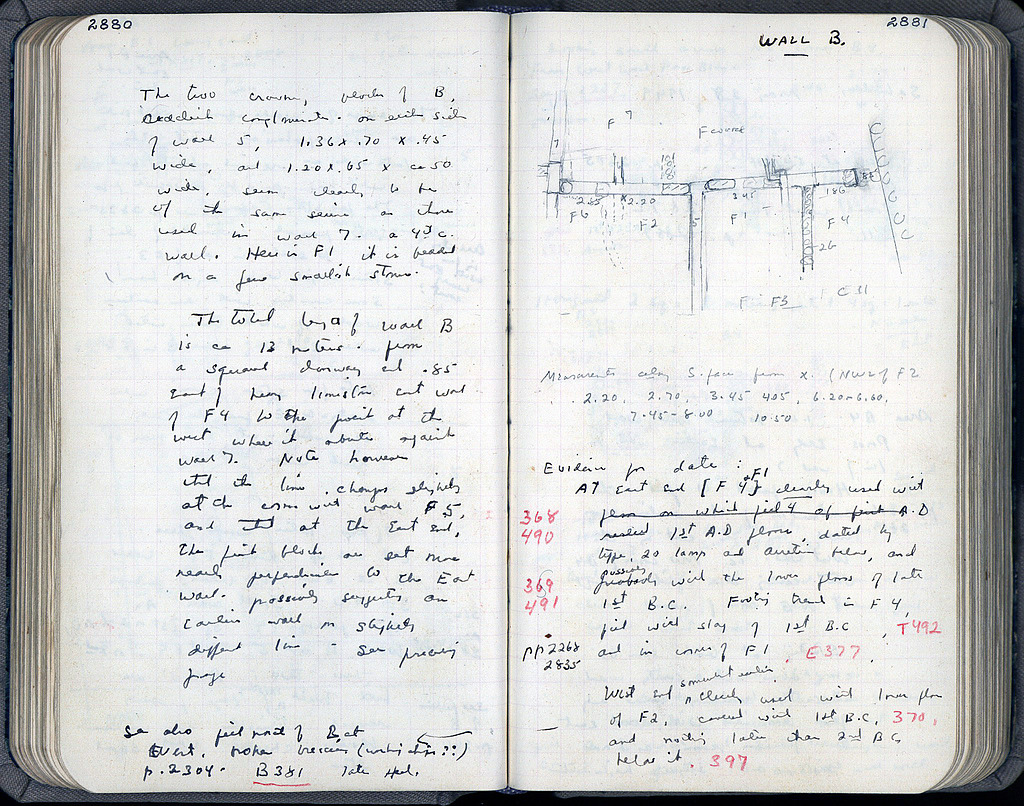 2880
The two crowning blocks of B,
reddish conglomerate on either side
of wall 5, 1.36 x .70 x .45
wide, and 1.20 x .65 x ca 50
wide, seem clearly to be
of the same series as those
used in wall 7. a 4th c.
wall. Here in F1 it is bedded
on a few smallish stones.
The total length of wall B
is ca 13 meters. from
a squared doorway end .85
East of heavy limestone east wall
of F4 to the point at the
west where it abuts against
wall 7. Note however
that the line changes slightly
at the cross wall with wall 5,
and at the East end,
the first blocks are set more
nearly perpendicular to the East
wall. possibly suggests an
earlier wall on slightly
different line - see preceding
page
See also just north of B at
East, broken (working chips ??)
p. 2304. B381 late Hell.
2881
WALL B.
F 7
F
7
181
18
2.85
2.20
3.45
186
.85
F 6
F 2
5
F 1
F 4
26
F F3
C 31
Measurements along S. face from x. (NW of F2
2.20, 2.70, 3.45 405, 6.20-6.60,
7.45-8.00 10.50
Evidence for date :
At East end [F 4] + F1 clearly used with
368
490
sealed 1st A.D floors, dated by
type, 20 lamps and below, and
369
491
possibly with the lower floors of late
1st B.C. Footing trench in F 4,
filled with of 1st B.C, T492
pp 2268
2835
and in corner of F1. E377.
West end somewhat earlier
clearly used with lower floor
of F2, covered with 1st B.C, 370,
and nothing later than 2nd BC
below it. 397